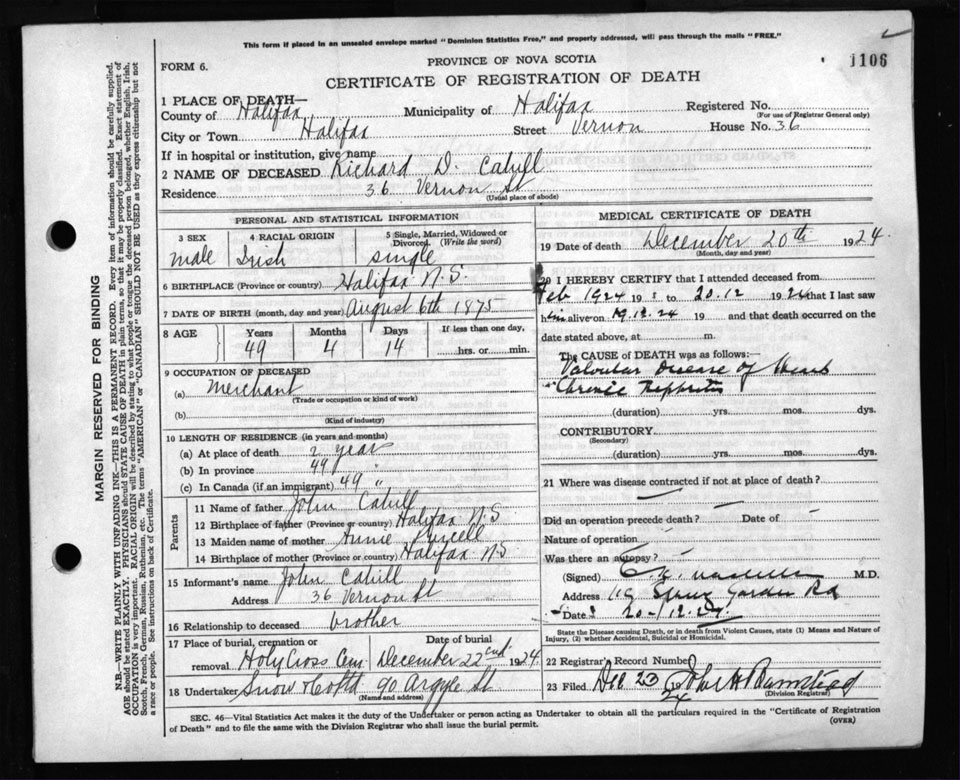 This form if placed in an unsealed envelope marked "Dominion Statistics Free," and properly addressed, will pass through the mails "FREE."
1106
FORM 6.
PROVINCE OF NOVA SCOTIA
CERTIFICATE OF REGISTRATION OF DEATH
1 PLACE OF DEATH—
County of Halifax Municipality of Halifax Registered No.
(For use of Registrar General only)
City or Town Halifax Street Vernon House No. 36
If in hospital or institution, give name
2 NAME OF DECEASED Richard D. Cahill
Residence 36 Vernon St
(Usual place of abode)
PERSONAL AND STATISTICAL INFORMATION
3 SEX 4 RACIAL ORIGIN 5 Single, Married, Widowed or Divorced. (Write the word)
male Irish single
6 BIRTHPLACE (Province or country) Halifax N.S.
7 DATE OF BIRTH (month, day and year) August 6th 1875
8 AGE Years Months Days If less than one day,
49 4 14 hrs. or min.
9 OCCUPATION OF DECEASED
(a) Merchant
(Trade or occupation or kind of work)
(b)
(Kind of industry)
10 LENGTH OF RESIDENCE (in years and months)
(a) At place of death 2 years
(b) In province 49 "
(c) In Canada (if an immigrant) 49 "
Parents
11 Name of father John Cahill
12 Birthplace of father (Province or country) Halifax N.S
13 Maiden name of mother Annie Purcell
14 Birthplace of mother (Province or country) Halifax N.S
15 Informant's name John Cahill
Address 36 Vernon St
16 Relationship to deceased brother
17 Place of burial, cremation or removal Date of burial
Holy Cross Cem. December 22nd 1924
18 Undertaker Snow & Co Ltd 90 Argyle St
(Name and address)
MEDICAL CERTIFICATE OF DEATH
19 Date of death December 20th 1924.
(Month, day and year)
20 I HEREBY CERTIFY that I attended deceased from
Feb 1924 19 to 20.12 1924 that I last saw
him alive on 19.12.24 19 and that death occurred on the
date stated above, at m.
The CAUSE of DEATH was as follows:
Valvular Disease of Heart
Chronic Nephritis
(duration) yrs. mos. dys.
CONTRIBUTORY
(Secondary)
(duration) yrs. mos. dys.
21 Where was disease contracted if not at place of death?
Did an operation precede death? Date of
Nature of operation
Was there an autopsy?
(Signed) M.D.
Address Garden Rd
Date 20-12.24.
State the Disease causing Death, or in death from Violent Causes, state (1) Means and Nature of Injury, (2) whether Accidental, Suicidal or Homicidal.
22 Registrar's Record Number
23 Filed Dec 23 19 24 John H Barnstead
(Division Registrar)
SEC. 46—Vital Statistics Act makes it the duty of the Undertaker or person acting as Undertaker to obtain all the particulars required in the "Certificate of Registration
of Death" and to file the same with the Division Registrar who shall issue the burial permit.
(OVER)
MARGIN RESERVED FOR BINDING
N.B.—WRITE PLAINLY WITH UNFADING INK—THIS IS A PERMANENT RECORD. Every item of information should be carefully supplied.
AGE should be stated EXACTLY. PHYSICIANS should STATE CAUSE OF DEATH in plain terms, so that it may be properly classified. Exact statement of
OCCUPATION is very important. RACIAL ORIGIN will be described by stating to what people or tongue the deceased person belonged, whether English, Irish,
Scotch, French, German, Russian, Ruthenian, etc. The terms "AMERICAN" or "CANADIAN" SHOULD NOT BE USED as they express citizenship but not
a race or people. See instructions on back of Certificate.